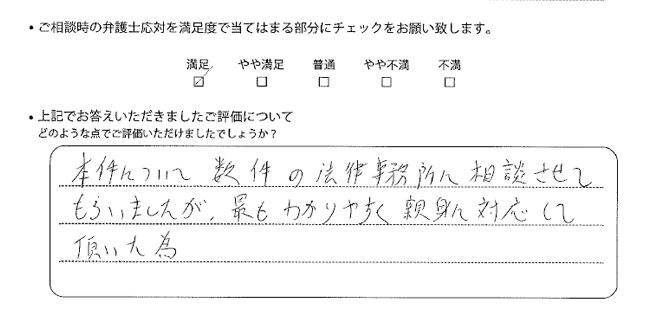 ・ご相談時の弁護士応対を満足度で当てはまる部分にチェックをお願い致します。
満足 やや満足 普通 やや不満 不満
☑ □ □ □ □
・上記でお答えいただきましたご評価について
どのような点でご評価いただけましたでしょうか？
本件について 数件の法律事務所に相談させて
もらいましたが、最もわかりやすく親身に対応して
頂いた為